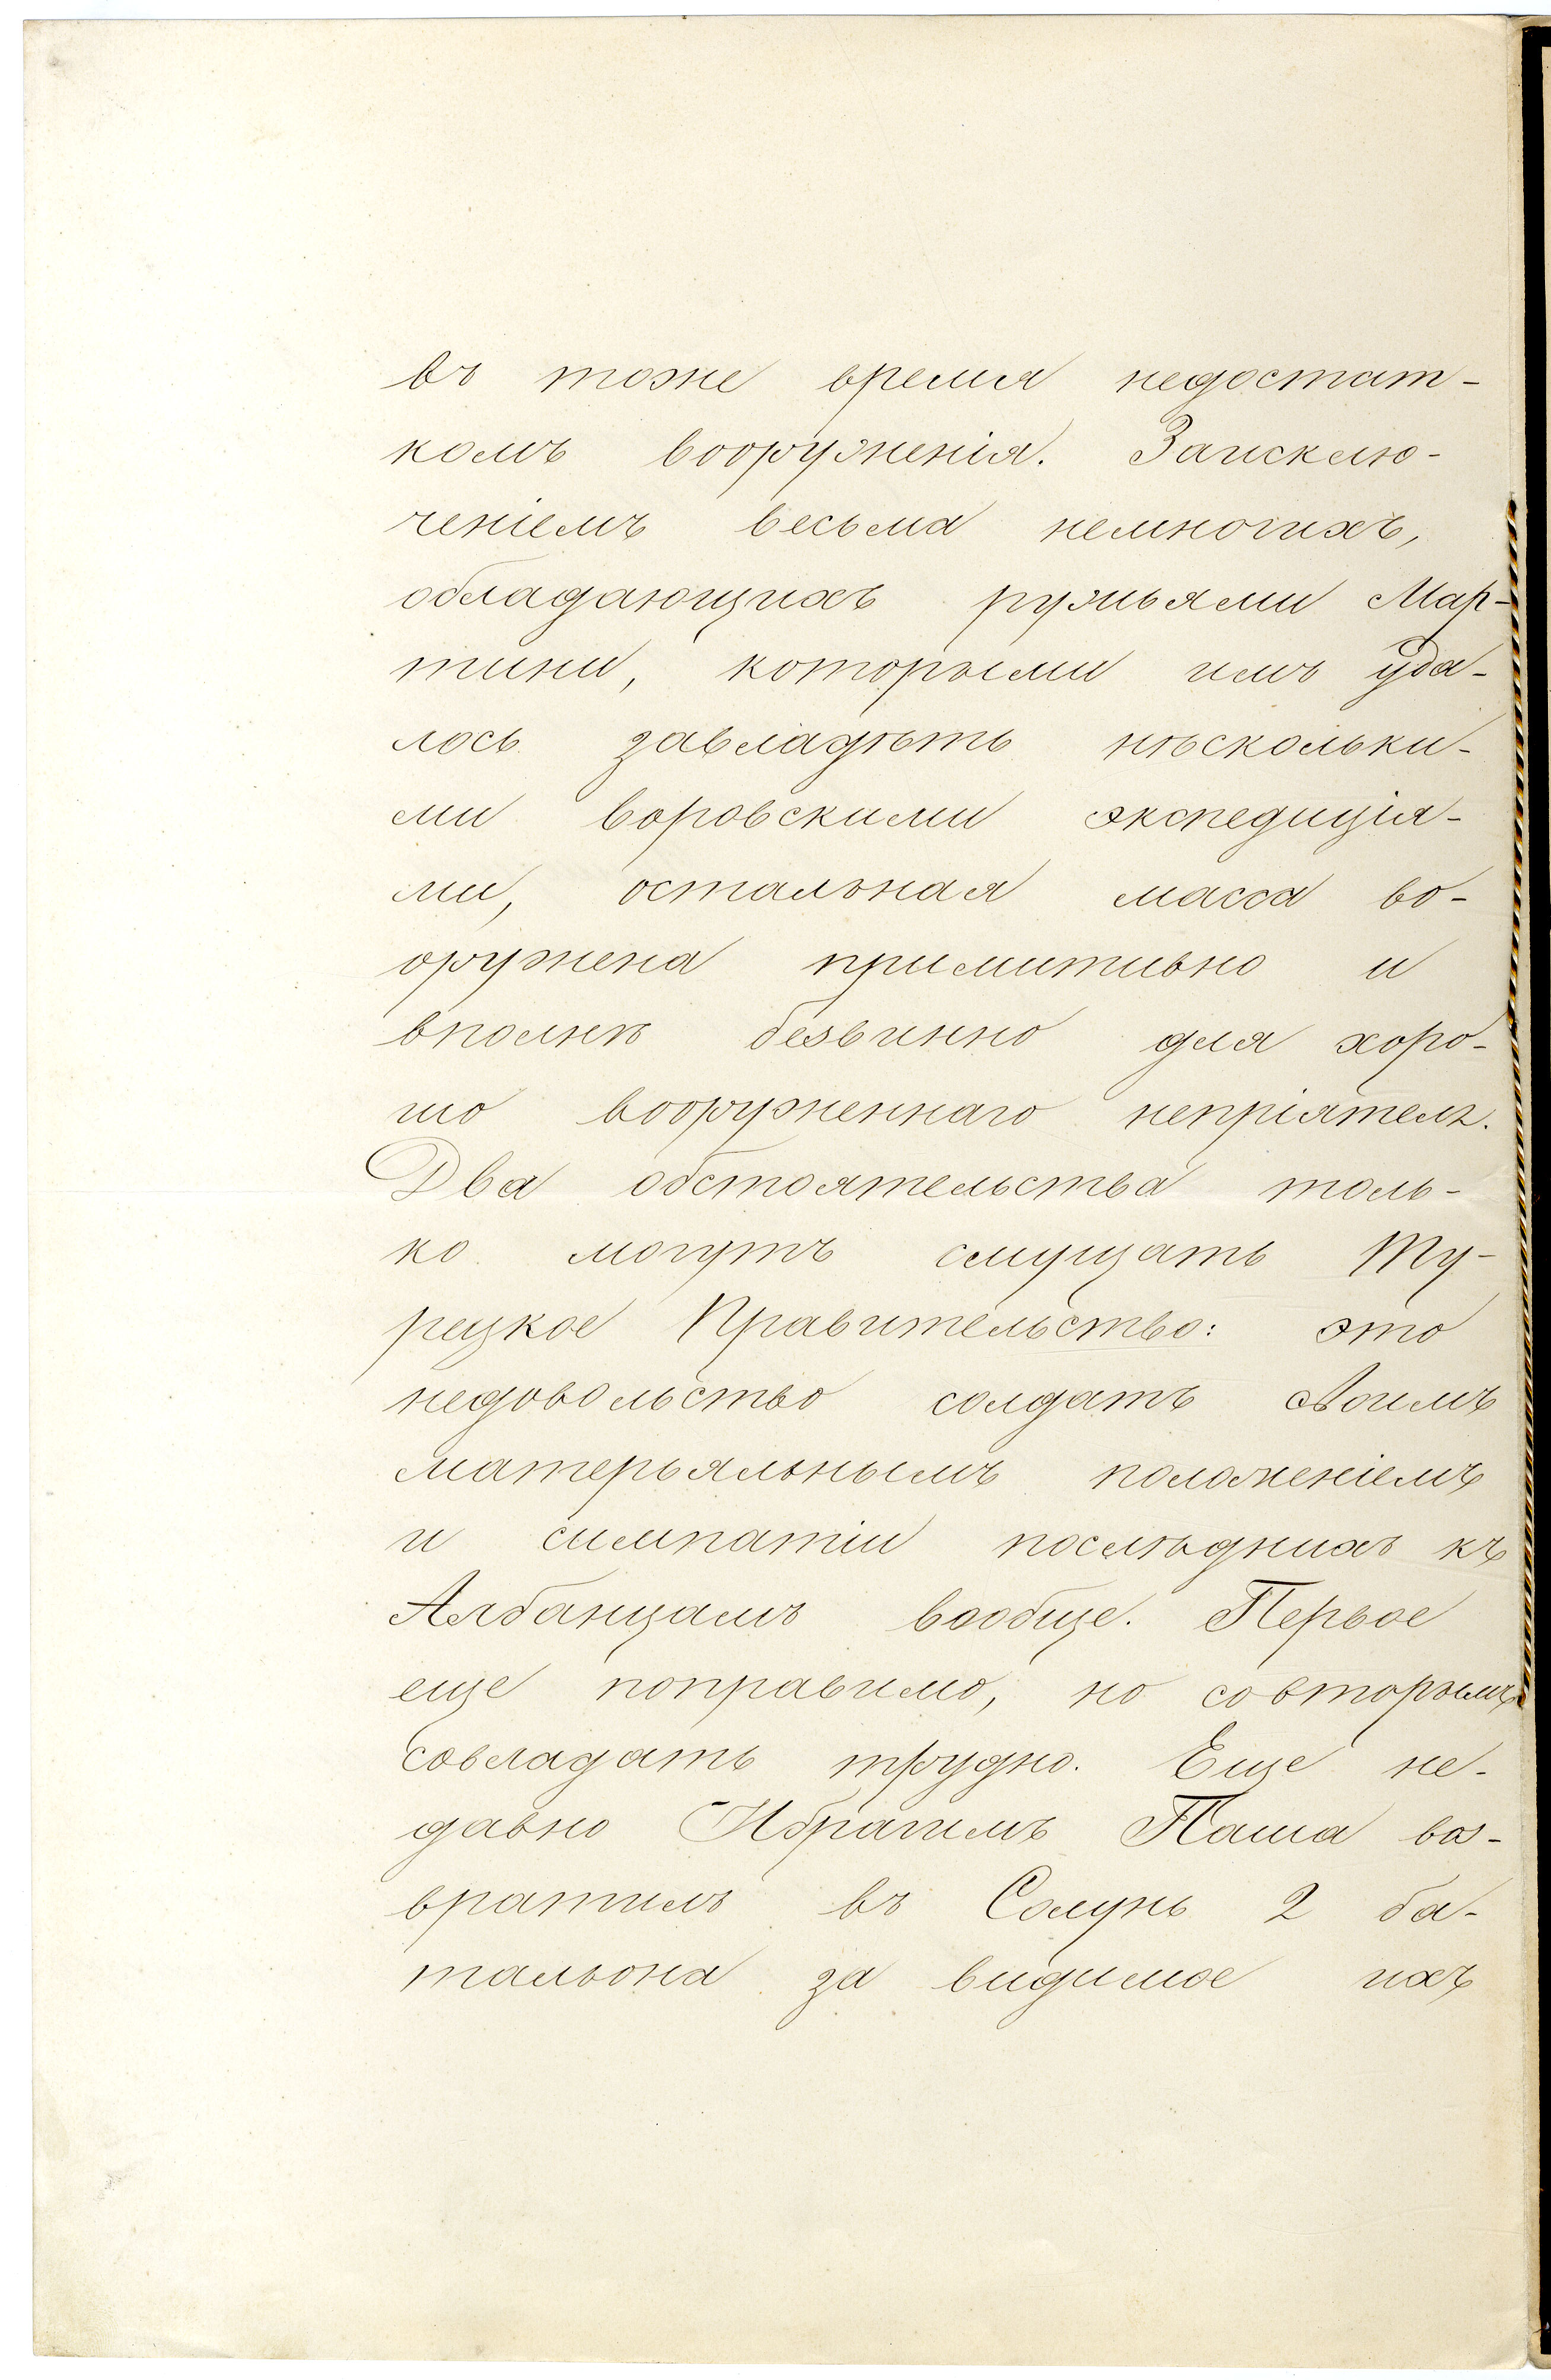 въ тоже время недостат-
комъ вооруженія. Заисклю-
ченіемъ весьма немногихъ,
обладающихъ ружьями Мар-
тини, которыми имъ уда-
лось завладѣть нѣскольки-
ми воровскими экспедиція-
ми, остальная масса во-
оружена примитивно и
вполнѣ безвинно для хоро-
шо вооруженнаго непріятеля.
Два обстоятельства толь-
ко могутъ смущать Ту-
рецкое Правительство: это
недовольство солдатъ своимъ
матерьяльнымъ положеніемъ
и симпатіи послѣднихъ къ
Албанцамъ вообще. Первое
еще поправимо, но совторымъ
совладать трудно. Еще не-
давно Ибрагимъ Паша воз-
вратилъ въ Солунь 2 ба-
тальона за видимое ихъ